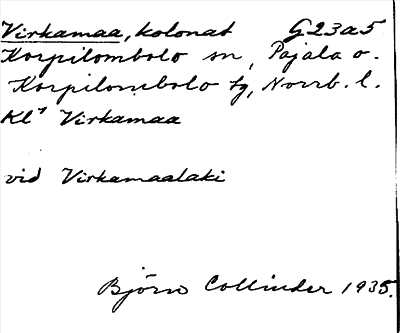 Virkamaa, kolonat G23a5
Korpilombolo sn, Pajala o.
Korpilombolo tg, Norrb. l.
Kl⁹ Virkamaa
vid Virkamaalaki
Björn Collinder 1935.